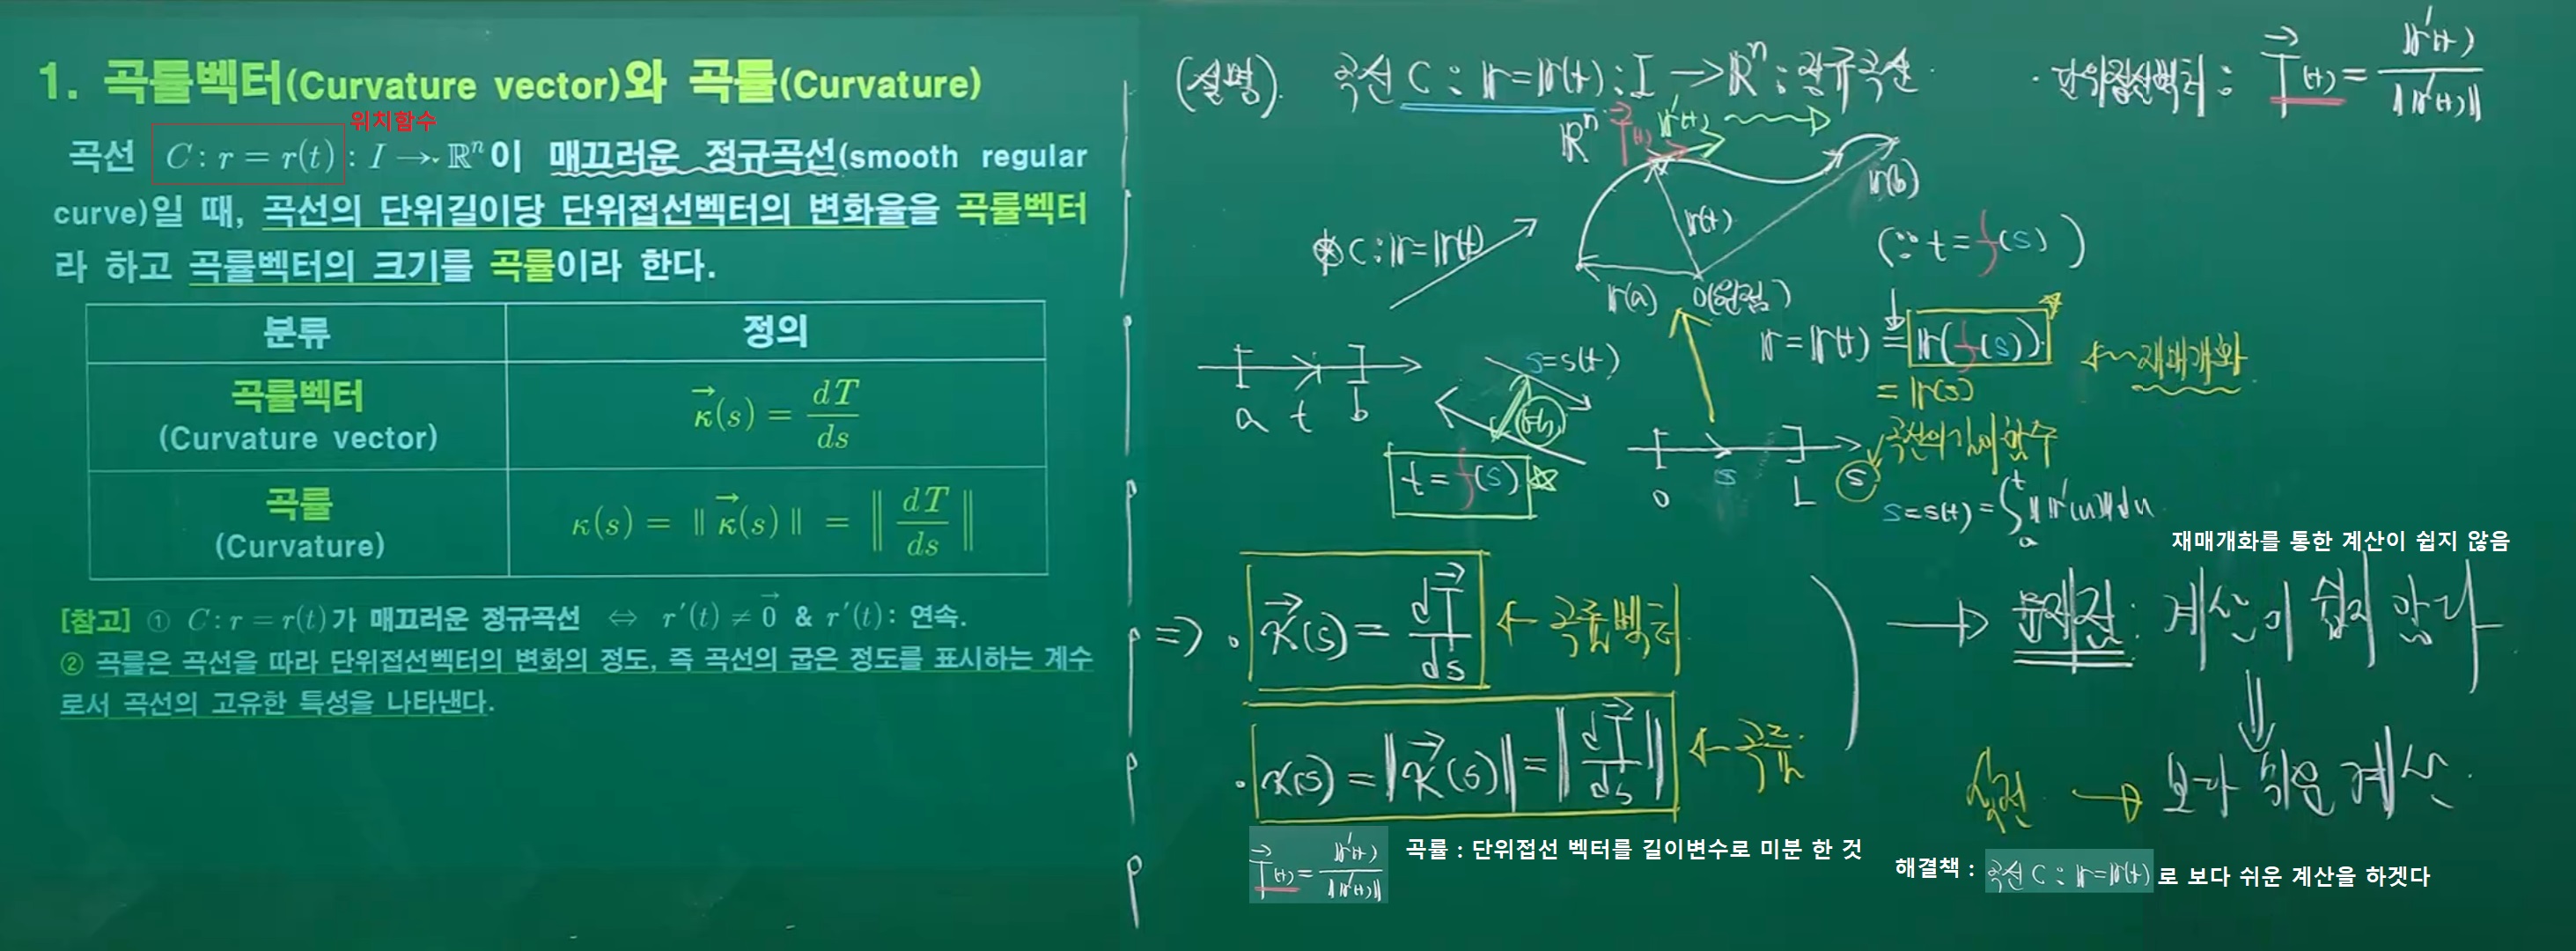 1. 곡률벡터(Curvature vector)와 곡률(Curvature)
위치함수
곡선 C : r = r(t) : I → ℝⁿ이 매끄러운 정규곡선(smooth regular
curve)일 때, 곡선의 단위길이당 단위접선벡터의 변화율을 곡률벡터
라 하고 곡률벡터의 크기를 곡률이라 한다.
분류 정의
곡률벡터
(Curvature vector)
κ⃗(s) = dT/ds
곡률
(Curvature)
κ(s) = ‖ κ⃗(s) ‖ = ‖ dT/ds ‖
[참고] ① C : r = r(t)가 매끄러운 정규곡선 ⇔ r′(t) ≠ 0⃗ & r′(t) : 연속.
② 곡률은 곡선을 따라 단위접선벡터의 변화의 정도, 즉 곡선의 굽은 정도를 표시하는 계수
로서 곡선의 고유한 특성을 나타낸다.
(설명). 곡선 C : r = r(t) : I → ℝⁿ : 정규곡선.
· 단위접선벡터 : T⃗(t) = r′(t)/‖r′(t)‖
ℝⁿ T⃗(t) r′(t)
r(t) r(b)
r(a) 0(원점)
⊛ C : r = r(t)
(∵ t = f(s))
r = r(t) = r(f(s)) ← 재매개화
= r(s)
a t b
s = s(t)
t = f(s)
0 s L
s 곡선의 길이함수
s = s(t) = ∫ₐᵗ ‖r′(u)‖du
⇒ · κ⃗(s) = dT⃗/ds ← 곡률벡터
· κ(s) = ‖κ⃗(s)‖ = ‖dT⃗/ds‖ ← 곡률.
재매개화를 통한 계산이 쉽지 않음
→ 문제점 : 계산이 쉽지 않다
⇓
실전 → 보다 쉬운 계산.
T⃗(t) = r′(t)/‖r′(t)‖ 곡률 : 단위접선 벡터를 길이변수로 미분 한 것
해결책 : 곡선 C : r = r(t) 로 보다 쉬운 계산을 하겟다